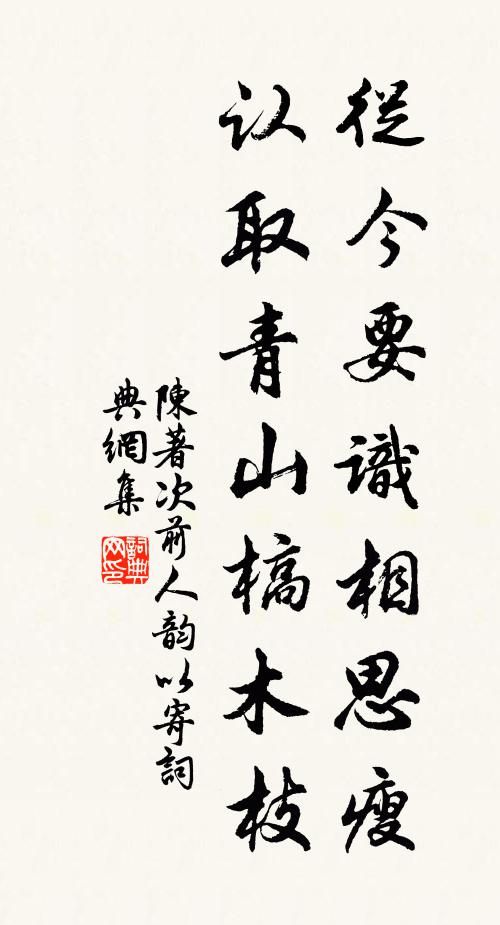 從今要識相思瘦
认取青山槁木枝
陳著次前人韵以寄詞
典網集
詞典网印